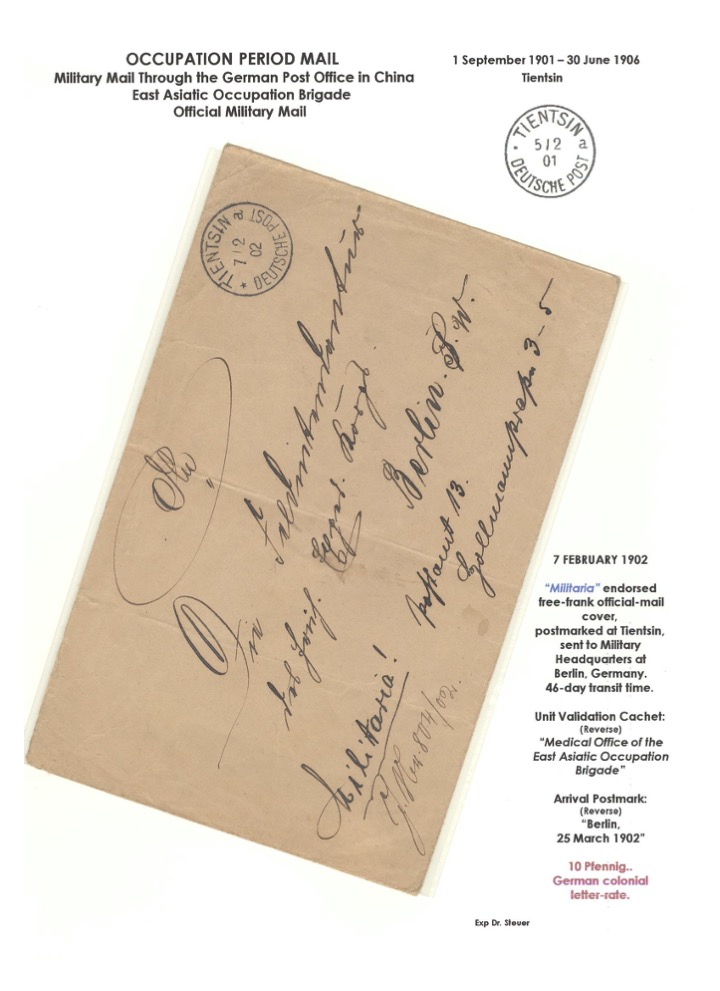 OCCUPATION PERIOD MAIL
Military Mail Through the German Post Office in China
East Asiatic Occupation Brigade
Official Military Mail
1 September 1901 – 30 June 1906
Tientsin
TIENTSIN a
5/2
01
DEUTSCHE POST
TIENTSIN a
7/2
02
DEUTSCHE POST
An
Die
Feldintendantur
des Ostas.
Berlin. S. W.
Postamt 13.
3-5
Militaria!
7 FEBRUARY 1902
"Militaria" endorsed
free-frank official-mail
cover,
postmarked at Tientsin,
sent to Military
Headquarters at
Berlin, Germany.
46-day transit time.
Unit Validation Cachet:
(Reverse)
"Medical Office of the
East Asiatic Occupation
Brigade"
Arrival Postmark:
(Reverse)
"Berlin,
25 March 1902"
10 Pfennig..
German colonial
letter-rate.
Exp Dr. Steuer